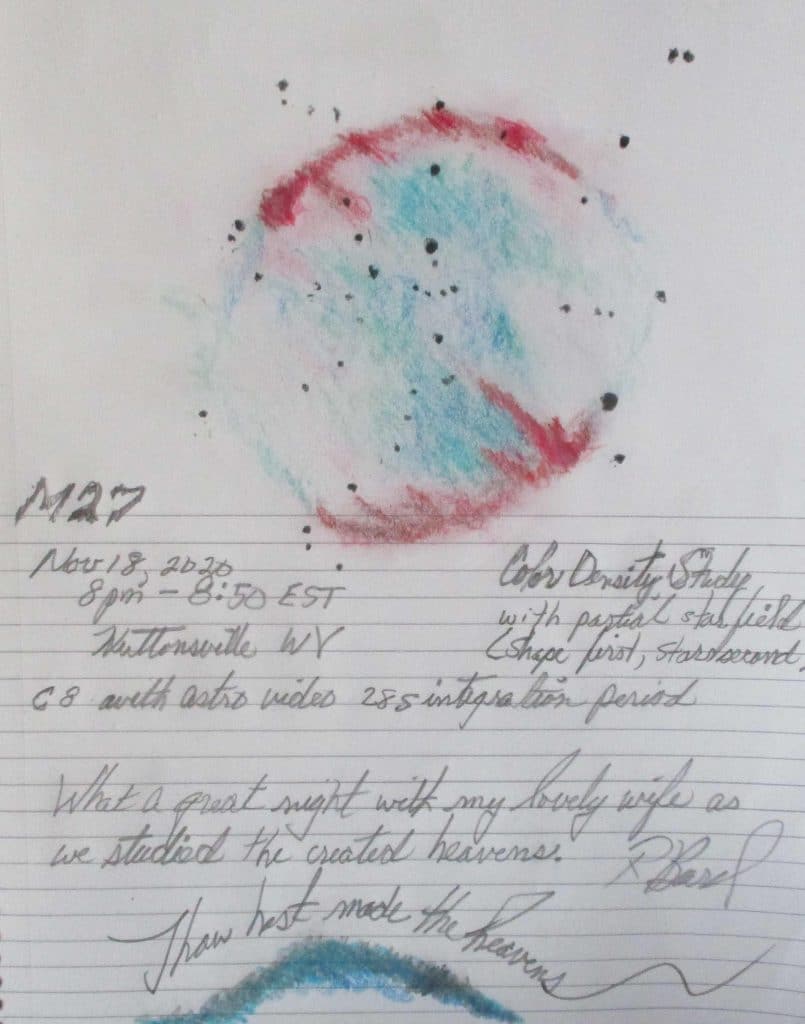 M27
Nov 18, 2020
8pm - 8:50 EST
Huttonsville WV
Color Density Study
with partial star field
(shape first, stars second)
C8 with astro video 28s integration period
What a great night with my lovely wife as
we studied the created heavens.
Thou hast made the heavens